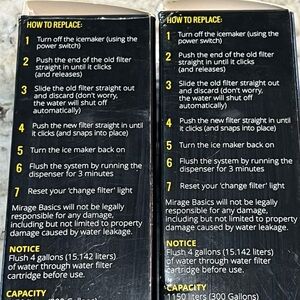 HOW TO REPLACE:
1 Turn off the icemaker (using the
power switch)
2 Push the end of the old filter
straight in until it clicks
(and releases)
3 Slide the old filter straight out
and discard (don't worry,
the water will shut off
automatically)
4 Push the new filter straight in until
it clicks (and snaps into place)
5 Turn the ice maker back on
6 Flush the system by running the
dispenser for 3 minutes
7 Reset your 'change filter' light
Mirage Basics will not be legally
responsible for any damage,
including but not limited to property
damage caused by water leakage.
NOTICE
Flush 4 gallons (15.142 liters)
of water through water filter
cartridge before use.
CAPACITY
HOW TO REPLACE:
1 Turn off the icemaker (using the
power switch)
2 Push the end of the old filter
straight in until it clicks
(and releases)
3 Slide the old filter straight out
and discard (don't worry,
the water will shut off
automatically)
4 Push the new filter straight in until
it clicks (and snaps into place)
5 Turn the ice maker back on
6 Flush the system by running the
dispenser for 3 minutes
7 Reset your 'change filter' light
Mirage Basics will not be legally
responsible for any damage,
including but not limited to property
damage caused by water leakage.
NOTICE
Flush 4 gallons (15.142 liters)
of water through water filter
cartridge before use.
CAPACITY
1150 liters (300 Gallons)